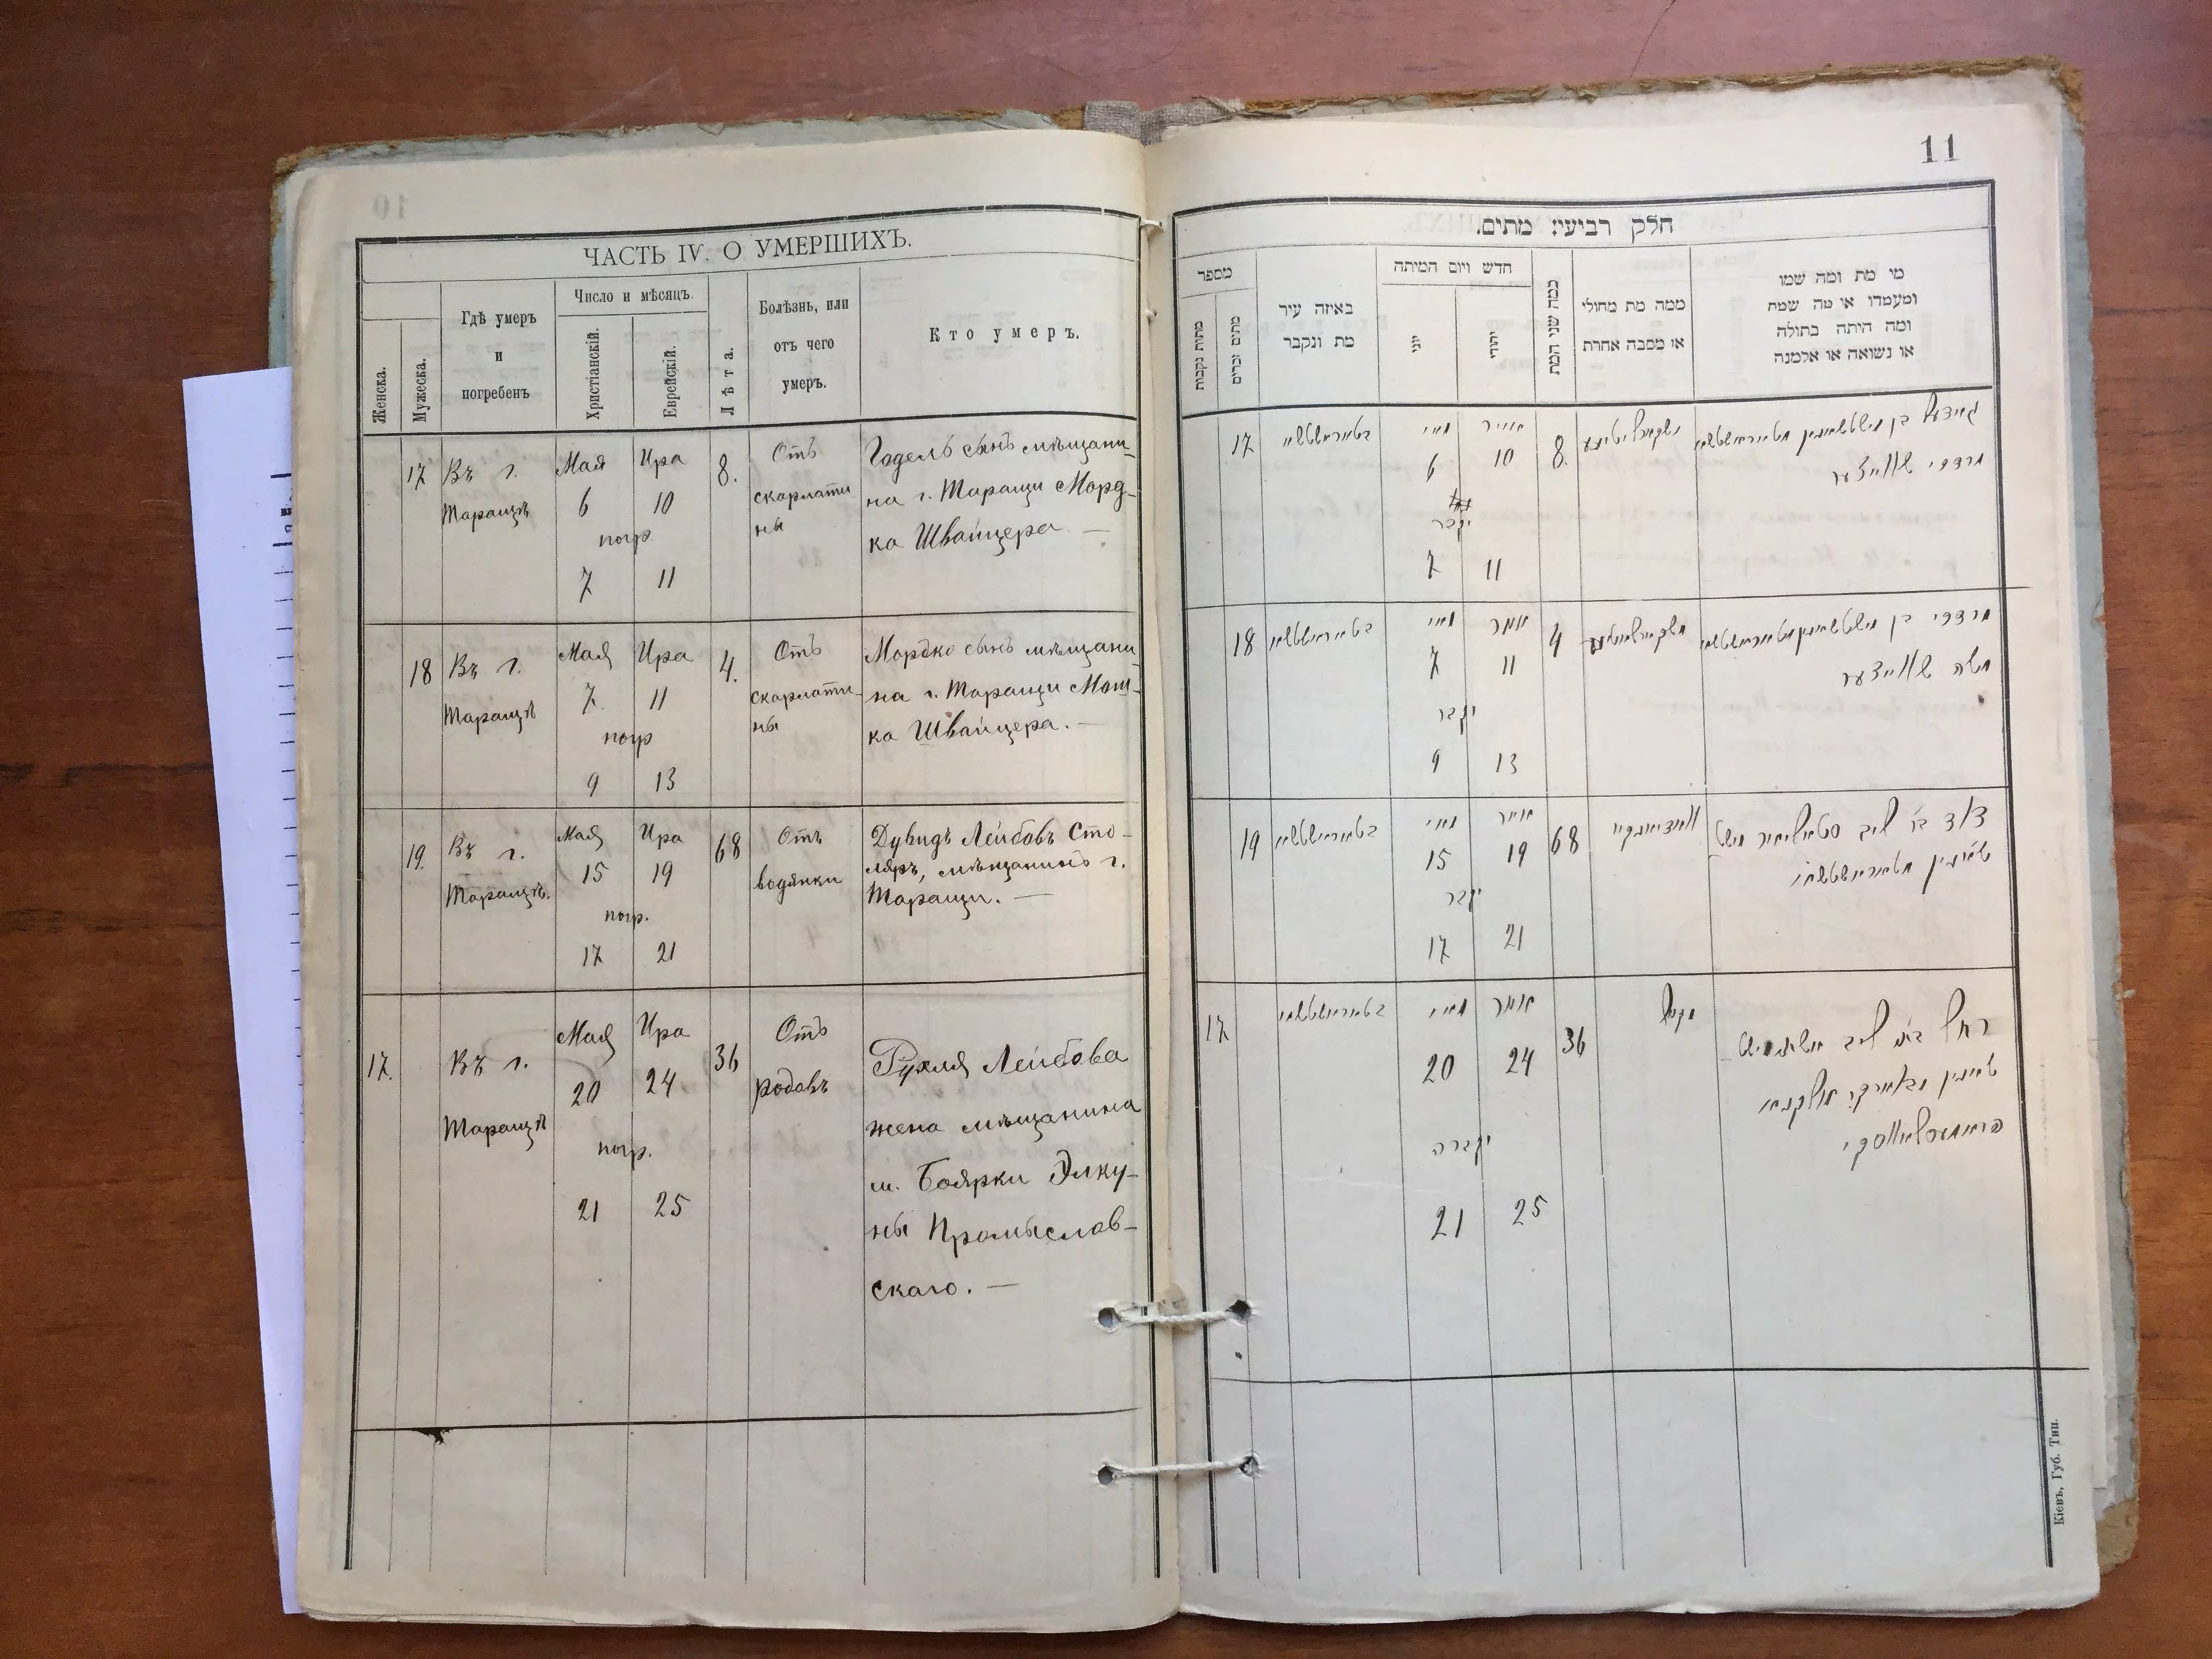 10
ЧАСТЬ IV. О УМЕРШИХЪ.
Женска.
Мужеска.
Гдѣ умеръ
и
погребенъ
Число и мѣсяцъ.
Христіанскій.
Еврейскій.
Лѣта.
Болѣзнь, или
отъ чего
умеръ.
Кто умеръ.
17
Въ г.
Таращѣ
Мая
Ира
6
10
погр
7
11
8.
Отъ
скарлати
ны
Годель сынъ мѣщани-
на г. Таращи Морд-
ка Швайцера —
18
Въ г.
Таращѣ
Мая
Ира
7
11
погр
9
13
4.
Отъ
скарлати-
ны
Мордко сынъ мѣщани-
на г. Таращи Мош-
ка Швайцера. —
19.
Въ г.
Таращѣ.
Мая
Ира
15
19
погр.
17
21
68
Отъ
водянки
Дувидъ Лейбовъ Сто-
ляръ, мѣщанинъ г.
Таращи. —
17.
Въ г.
Таращѣ
Мая
Ира
20
24
погр.
21
25
36
Отъ
родовъ
Рухля Лейбова
жена мѣщанина
м. Боярки Элку-
ны Промыслав-
скаго. —
11
חלק רביעי: מתים.
מספר
מתות נקבות
מתים זכרים
באיזה עיר
מת ונקבר
חדש ויום המיתה
יוני
יהודי
כמה שני המת
ממה מת מחולי
או מסבה אחרת
מי מת ומה שמו
ומעמדו או מה שמת
ומה היתה בתולה
או נשואה או אלמנה
17
מאי
אייר
6
10
נקבר
7
11
8.
מרדכי שווייצער
18
מאי
אייר
7
11
נקבר
9
13
4
משה שווייצער
19
מאי
אייר
15
19
נקבר
17
21
68
דוד בר ליב
17
מאי
אייר
20
24
נקברה
21
25
36
רחל בת ליב
Кіевъ, Губ. Тип.